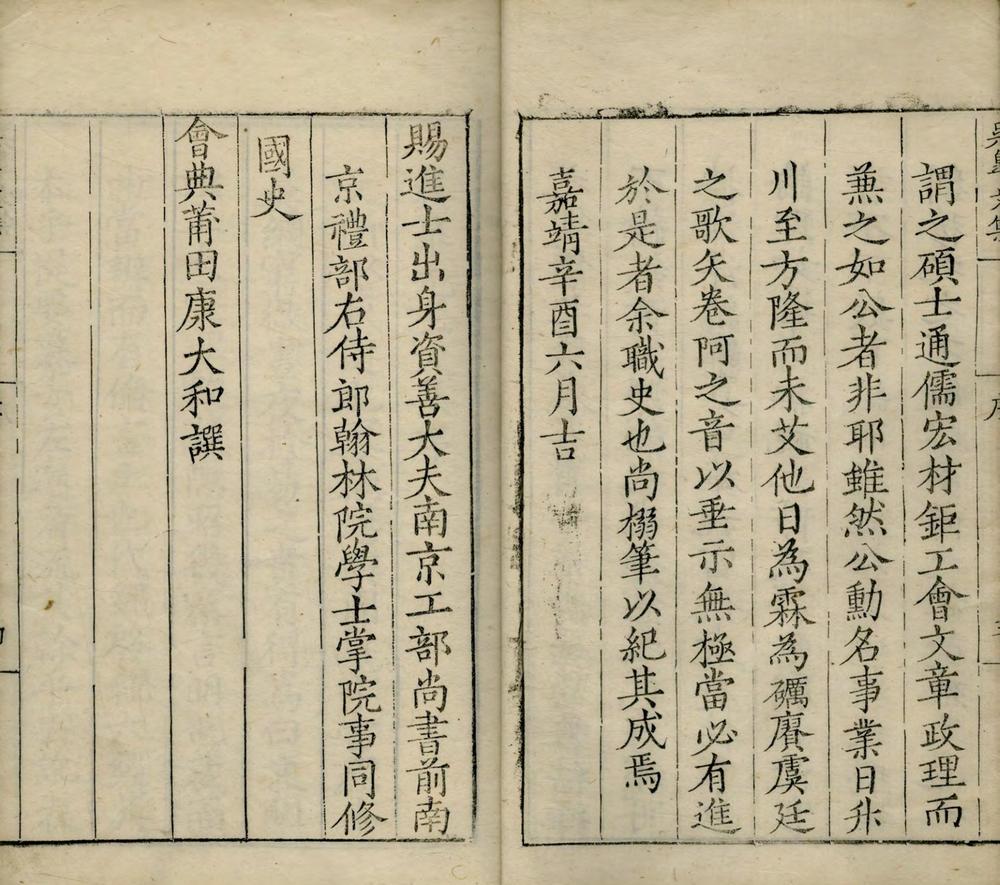 謂之碩士通儒宏材鉅工會文章政理而
兼之如公者非耶雖然公勳名事業日升
川至方隆而未艾他日為霖為礪賡虞廷
之歌矢卷阿之音以垂示無極當必有進
於是者余職史也尚搦筆以紀其成焉
嘉靖辛酉六月吉
賜進士出身資善大夫南京工部尚書前南
京禮部右侍郎翰林院學士掌院事同修
國史
會典莆田康大和譔